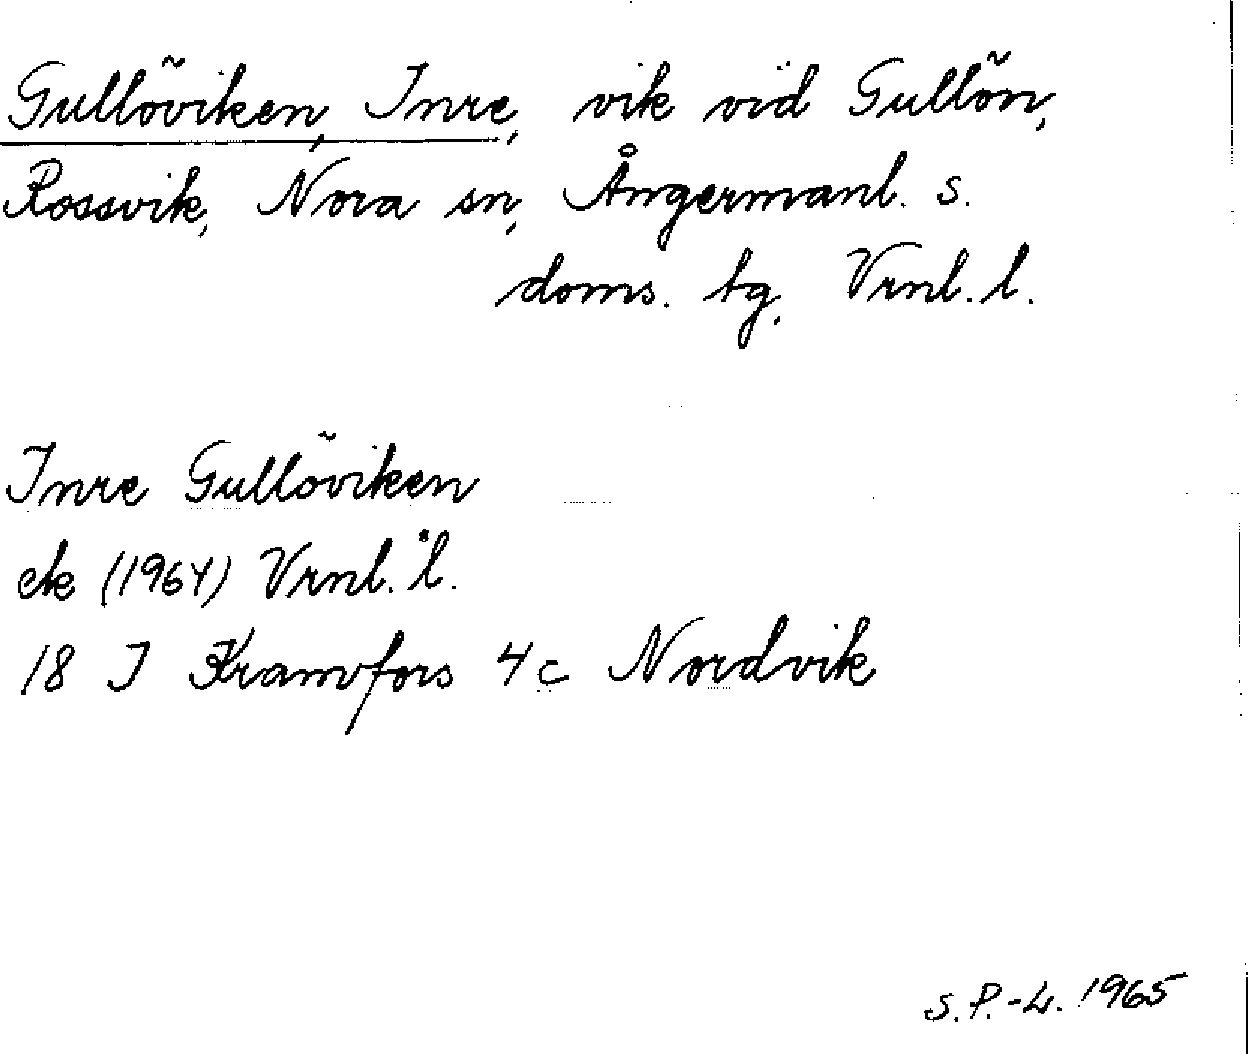 Gullöviken, Inre, vik vid Gullön,
Rossvik, Nora sn, Ångermanl. s.
doms. tg, Vrnl. l.
Inre Gullöviken
ek (1964) Vrnl. l.
18 J Kramfors 4 c Nordvik
S. P.-L. 1965